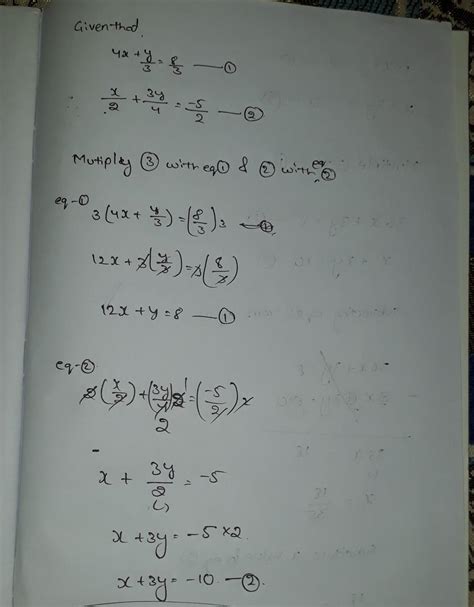 Given that,
4x + y/3 = 8/3 —— ①
x/2 + 3y/4 = -5/2 —— ②
Mutiplky ③ with eq① & ② with eq②
eq-①
3(4x + y/3) = (8/3)3
12x + 3(y/3) = 3(8/3)
12x + y = 8 —— ①
eq-②
2(x/2) + (3y/4)2 = (-5/2)2
1
2
x + 3y/2 = -5
x + 3y = -5 × 2
x + 3y = -10 —②